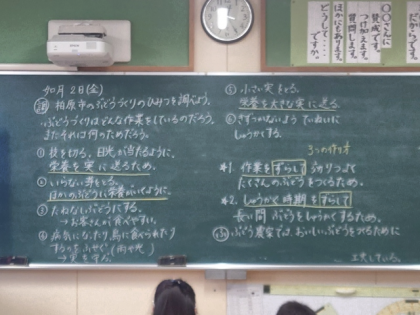 10月2日(金)
柏原市のぶどうづくりのひみつを調べよう。
ぶどうづくりはどんな作業をしているのだろう。
またそれは何のためだろう。
① 枝を切る、日光が当たるように。
栄養を実に送るため。
② いらない芽をとる。
ほかのぶどうに栄養がいくように。
③ たねなしぶどうにする。
→お客さんが食べやすい。
④ 病気になったり、鳥に食べられたり
するのをふせぐ
→
⑤ 小さい実をとる。
栄養を大きな実に送る。
⑥ きずつかないように ていねいに
しゅうかくする。
3つの作業
*1. 作業をずらして
たくさんのぶどうをつくるため。
*2. しゅうかく時期をずらして
長い間 ぶどうをしゅうかくするため。
ぶどう農家では、おいしいぶどうをつくるために
工夫している。
○○さんに
賛成です。
つけ加えます。
質問します。
ほかにもあります。
どうして・・・・
ですか。
だからです。